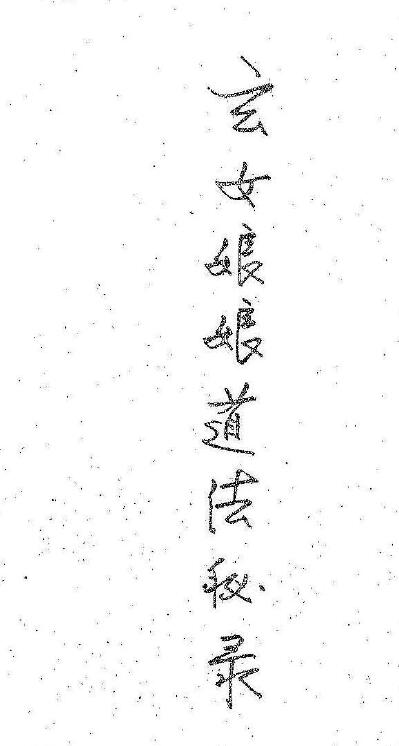 玄女娘娘道法秘录